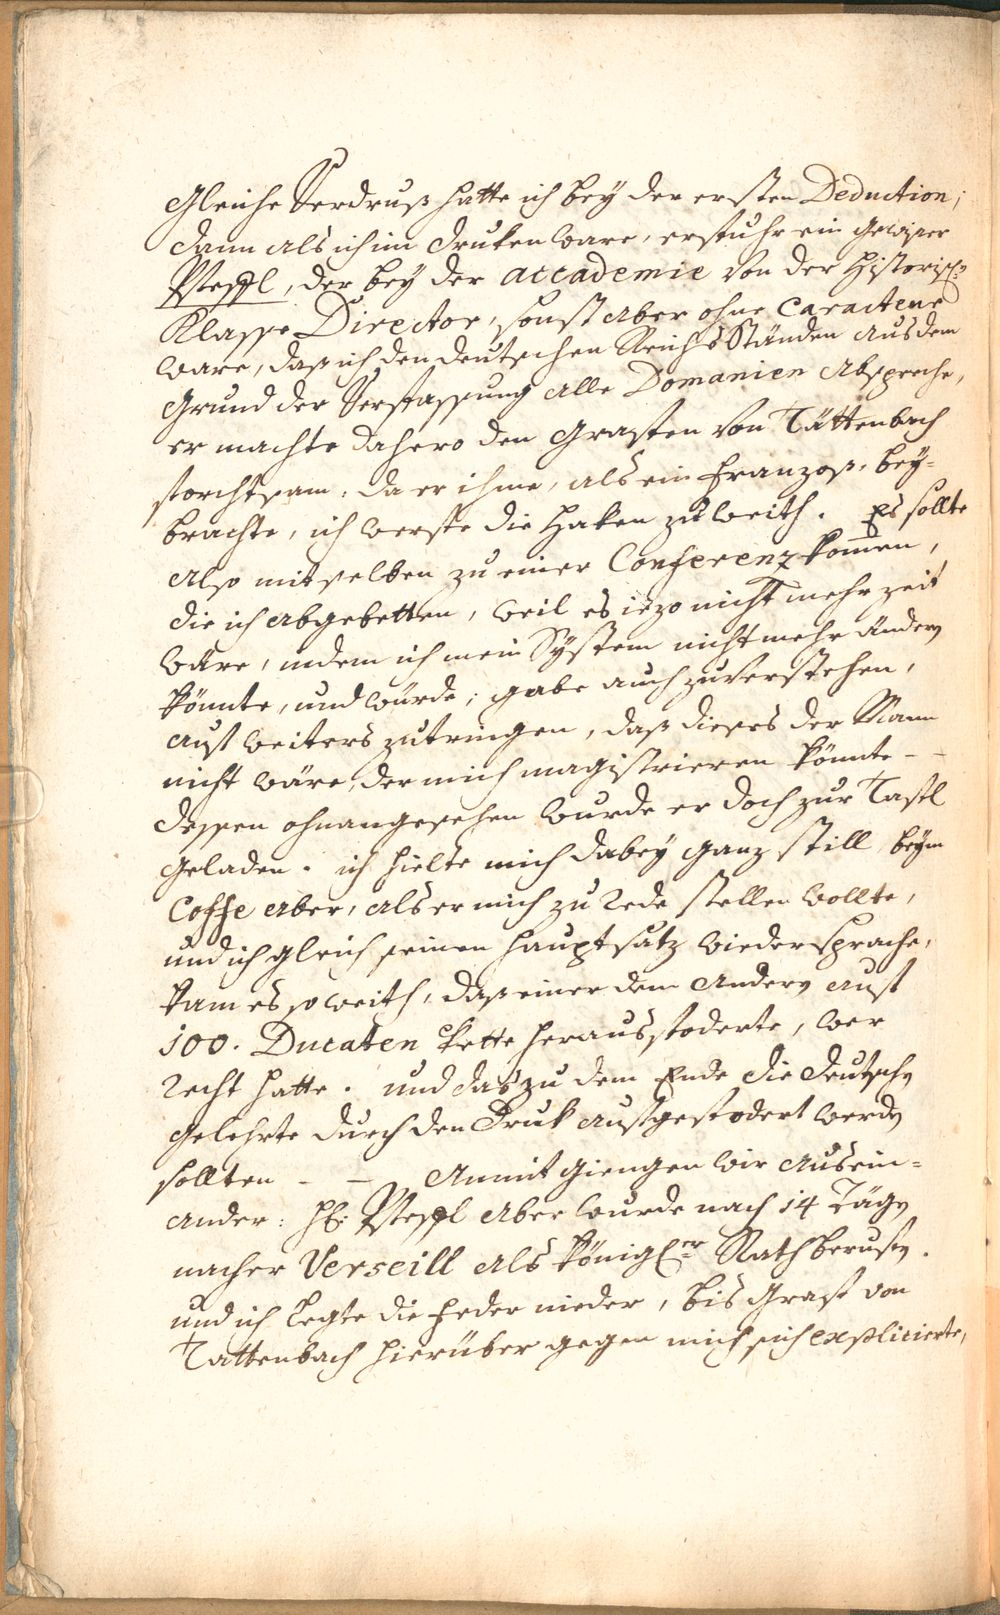 Gleiche Verdruß hatte ich bey der ersten Deduction;
dann als ich im druken ware, erfuhr ein gewißer
Pfeffl, der bey der accademie von der Historisch:
Klasse Director, sonst aber ohne Caractere
ware, daß ich den deutschen Reichs Ständen aus dem
Grund der Verfassung alle Domanien abspreche,
er machte dahero den Grafen von Tättenbach
forchtsam, da er ihme, als ein Franzoß, bey=
brachte, ich werfe die Haken zu weith. Es sollte
also mit selben zu einer Conferenz kommen,
die ich abgebetten, weil es iezo nicht mehr zeit
wäre, indem ich mein System nicht mehr ändern
könnte, und würde; gabe auch zuverstehen,
auf weiters zutringen, daß dieses der Mann
nicht wäre, der mich magistrieren könnte – –
dessen ohnangesehen wurde er doch zur Tafl
geladen. ich hielte mich dabey ganz still, beym
Coffe aber, als er mich zu rede stellen wollte,
und ich gleich seinen hauptsatz wiedersprache,
kam es so weith, daß einer dem andern auf
100. Ducaten Wette herausfoderte, wer
recht hatte. und das zu dem Ende die deutschen
gelehrte durch den Druk aufgefodert werden
sollten – – Anmit giengen wir ausein=
ander: H: Pfeffl aber wurde nach 14 Tägen
nacher Verseill als königler Rath berufen.
und ich legte die Feder nieder, bis Graf von
Tattenbach hierüber gegen mich sich explicierte,